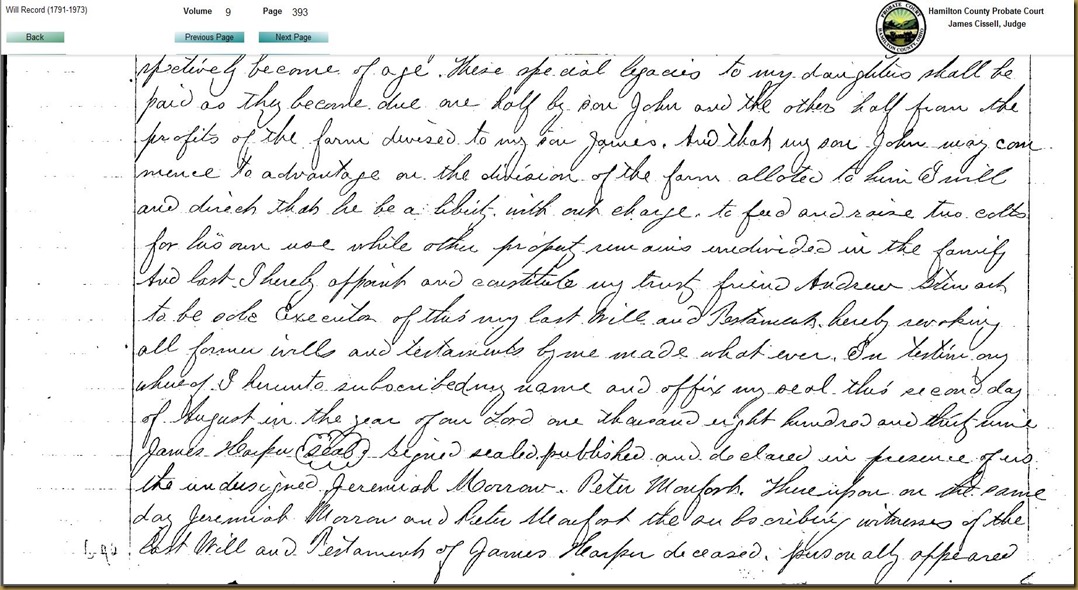 Will Record (1791-1973)
Volume 9 Page 393
Hamilton County Probate Court
James Cissell, Judge
Back
Previous Page
Next Page
PROBATE COURT
HAMILTON COUNTY, OHIO
spectively become of age. These special legacies to my daughters shall be
paid as they become due one half by son John and the other half from the
profits of the farm devised to my son James. And that my son John may com
mence to advantage on the division of the farm alloted to him I will
and direct that he be a liberty with out charge. to feed and raise two colts
for his own use while other property remains undivided in the family
And last I hereby appoint and constitute my trusty friend Andrew
to be sole Executor of this my last Will and Testament. hereby revoking
all former wills and testaments by me made what ever. In testimony
whereof I hereunto subscribed my name and affix my seal this second day
of August in the year of our Lord one thousand eight hundred and thirty nine
James Harper (seal) Signed sealed published and declared in presence of us
the undersigned Jeremiah Morrow. Peter Monfort. There upon on the same
day Jeremiah Morrow and Peter Monfort the subscribing witnesses of the
Last Will and Testament of James Harper deceased. personally appeared